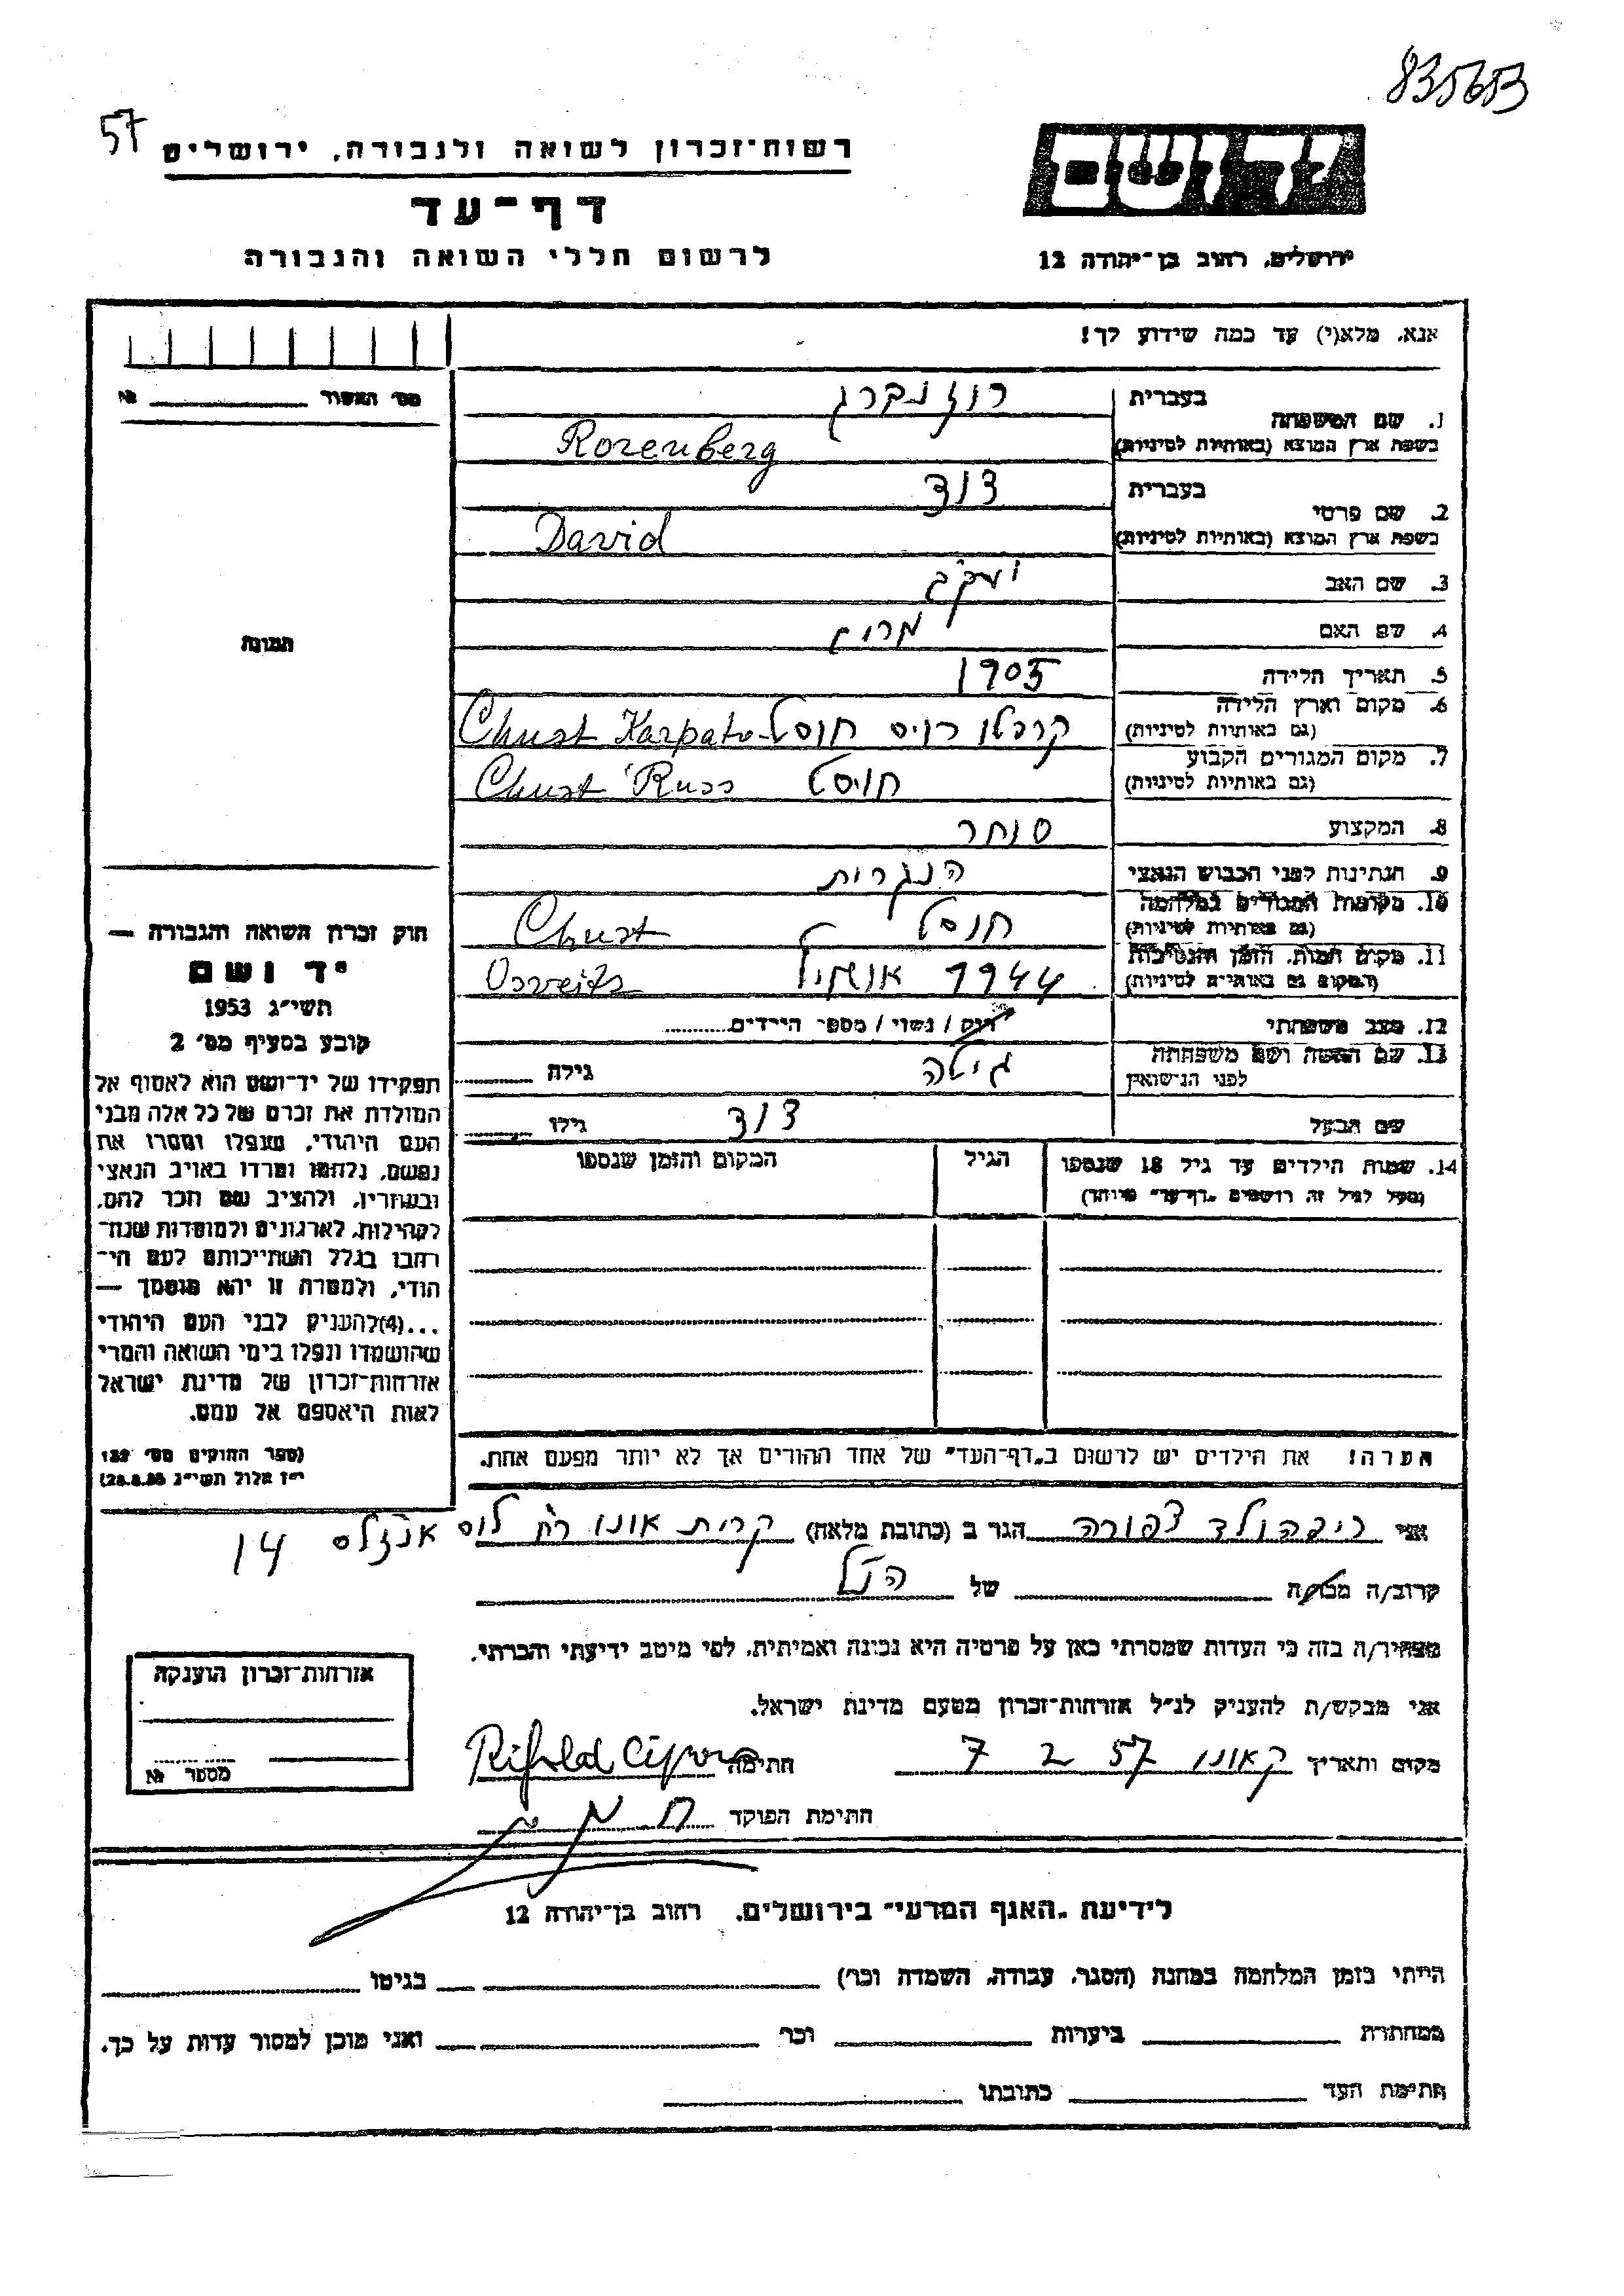 835653
57
רשות-זכרון לשואה ולגבורה, ירושלים
יד ושם
דף-עד
לרשום חללי השואה והגבורה
ירושלים, רחוב בן-יהודה 12
אנא, מלא(י) עד כמה שידוע לך!
מס' האשור №
1. שם המשפחה
בעברית רוזנברג
בשפת ארץ המוצא (באותיות לטיניות) Rozenberg
2. שם פרטי
בעברית דוד
בשפת ארץ המוצא (באותיות לטיניות) David
3. שם האב יעקב
4. שם האם
תמונה
5. תאריך הלידה 1905
6. מקום וארץ הלידה קרפטו רוס חוסט Chust Karpato-
(גם באותיות לטיניות)
7. מקום המגורים הקבוע חוסט Chust Russ
(גם באותיות לטיניות)
8. המקצוע סוחר
9. הנתינות לפני הכבוש הנאצי הנגרית
10. מקומות המגורים במלחמה חוסט Chust
(גם באותיות לטיניות)
11. מקום המות, הזמן והנסיבות 1944 Osveits
(המקום גם באותיות לטיניות)
12. מצב משפחתי רוק / נשוי / מספר הילדים
13. שם האשה ושם משפחתה גיטה גילה
לפני הנישואין
שם הבעל דוד גילו
14. שמות הילדים עד גיל 18 שנספו הגיל המקום והזמן שנספו
(מעל לגיל זה רושמים "דף-עד" מיוחד)
חוק זכרון השואה והגבורה —
יד ושם
תשי"ג 1953
קובע בסעיף מס' 2
תפקידו של יד-ושם הוא לאסוף אל
המולדת את זכרם של כל אלה מבני
העם היהודי, שנפלו ומסרו את
נפשם, נלחמו ומרדו באויב הנאצי
ובעוזריו, ולהציב שם וזכר להם,
לקהילות, לארגונים ולמוסדות שנח־
רבו בגלל השתייכותם לעם הי־
הודי, ולמטרה זו יהא מוסמך —
...(4) להעניק לבני העם היהודי
שהושמדו ונפלו בימי השואה והמרי
אזרחות-זכרון של מדינת ישראל
לאות היאספם אל עמם.
(ספר החוקים מס' 132
י"ז אלול תשי"ג 28.8.53)
הערה! את הילדים יש לרשום ב"דף-העד" של אחד ההורים אך לא יותר מפעם אחת.
אני ריפהולד צפורה הגר ב (כתובת מלאה) קרית אונו רח לוס אנזלס 14
קרוב/ה מכר/ה של הנ"ל
מצהיר/ה בזה כי העדות שמסרתי כאן על פרטיה היא נכונה ואמיתית, לפי מיטב ידיעתי והכרתי.
אני מבקש/ת להעניק לנ"ל אזרחות-זכרון מטעם מדינת ישראל.
אזרחות-זכרון הוענקה
מספר №
מקום ותאריך ק אונו 7 2 57 חתימה Rifold Cipora
חתימת הפוקד
לידיעת "האגף המדעי" בירושלים, רחוב בן-יהודה 12
הייתי בזמן המלחמה במחנה (הסגר, עבודה, השמדה וכו') בגיטו
במחתרת ביערות וכו' ואני מוכן למסור עדות על כך.
חתימת העד כתובתו